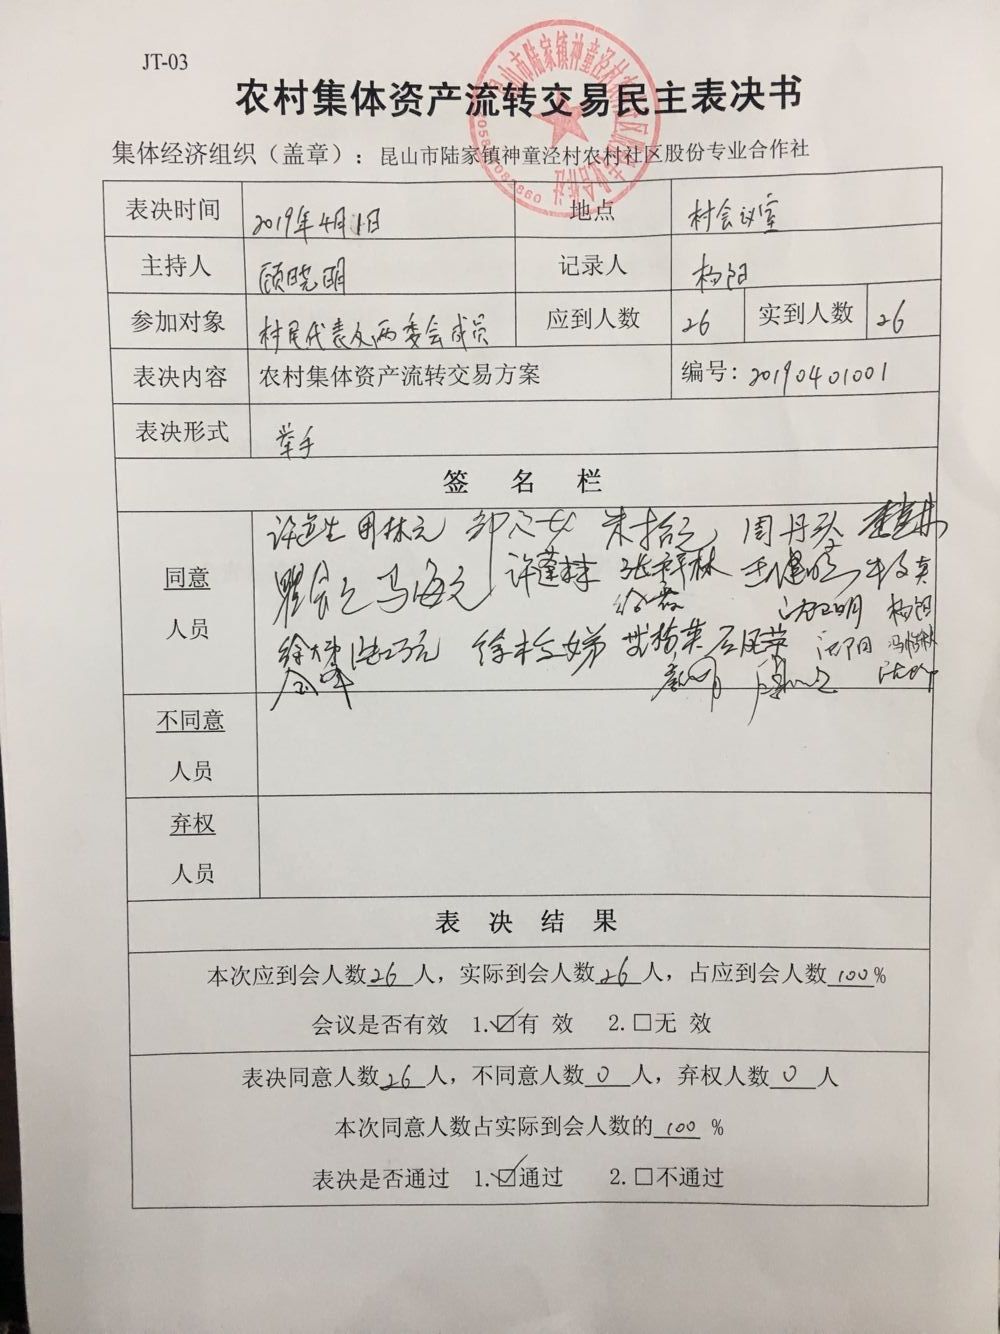 JT-03
农村集体资产流转交易民主表决书
集体经济组织（盖章）：昆山市陆家镇神童泾村农村社区股份专业合作社
表决时间 2019年4月1日 地点 村会议室
主持人 顾晓明 记录人 杨阳
参加对象 村民代表及两委会成员 应到人数 26 实到人数 26
表决内容 农村集体资产流转交易方案 编号：20190401001
表决形式 举手
签 名 栏
周林元 周丹
同意 马海元 许莲妹 张祥林
人员 杨阳
徐 石凤英
不同意
人员
弃权
人员
表 决 结 果
本次应到会人数26人，实际到会人数26人，占应到会人数100%
会议是否有效 1.☑有 效 2.□无 效
表决同意人数26人，不同意人数0人，弃权人数0人
本次同意人数占实际到会人数的100 %
表决是否通过 1.☑通过 2.□不通过